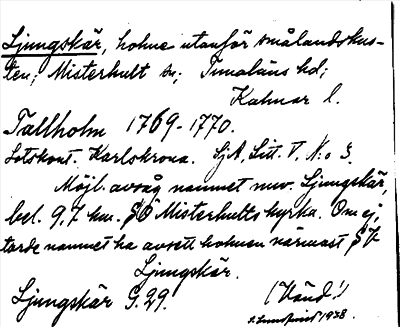 Ljungskär, holme utanför smålandskus-
ten; Misterhult sn; Tunaläns hd;
Kalmar l.
Tallholm 1769-1770.
Lotskont. Karlskrona. SjA, Litt. V, N:o 3.
Möjl. avsåg namnet nuv. Ljungskär,
bel. 9,7 km. SÖ Misterhults kyrka. Om ej,
torde namnet ha avsett holmen närmast SV
Ljungskär.
Ljungskär G.29. (Händ!)
1938